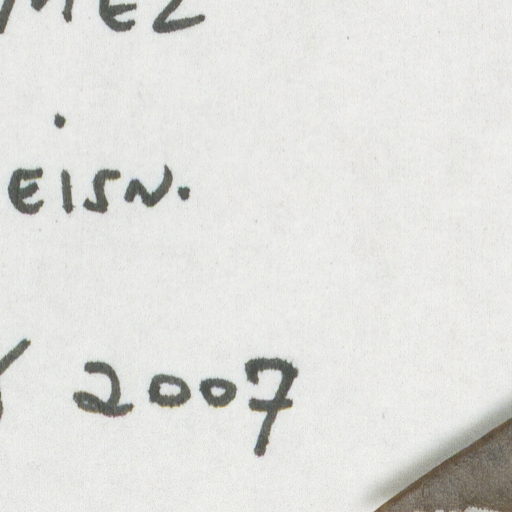 MEZ
EISN.
2007